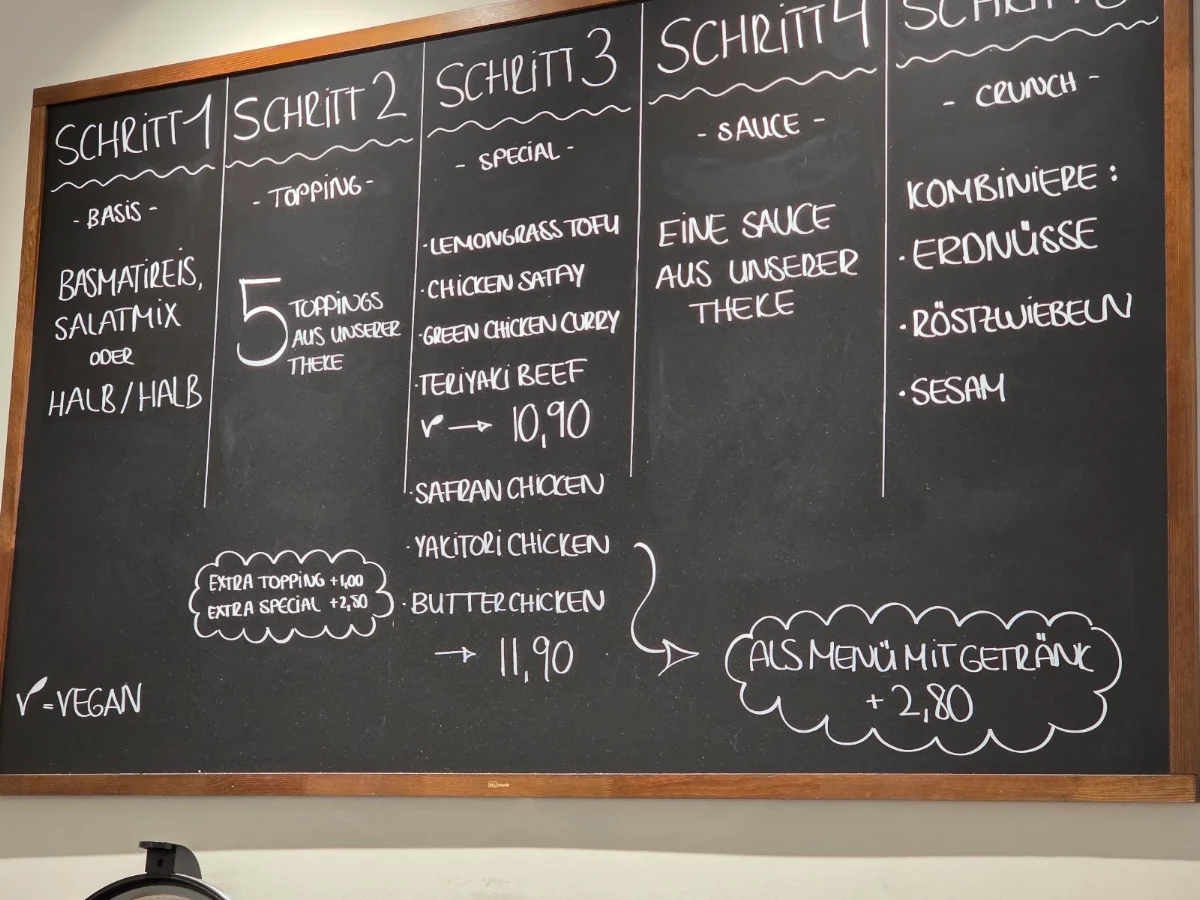 SCHRITT 1
- BASIS -
BASMATIREIS,
SALATMIX
ODER
HALB/HALB
V = VEGAN
SCHRITT 2
- TOPPING -
5 TOPPINGS
AUS UNSERER
THEKE
EXTRA TOPPING +1,00
EXTRA SPECIAL +2,80
SCHRITT 3
- SPECIAL -
· LEMONGRASS TOFU
· CHICKEN SATAY
· GREEN CHICKEN CURRY
· TERIYAKI BEEF
V → 10,90
· SAFRAN CHICKEN
· YAKITORI CHICKEN
· BUTTERCHICKEN
→ 11,90
SCHRITT 4
- SAUCE -
EINE SAUCE
AUS UNSERER
THEKE
SCHRITT
- CRUNCH -
KOMBINIERE :
· ERDNÜSSE
· RÖSTZWIEBELN
· SESAM
ALS MENÜ MIT GETRÄNK
+ 2,80